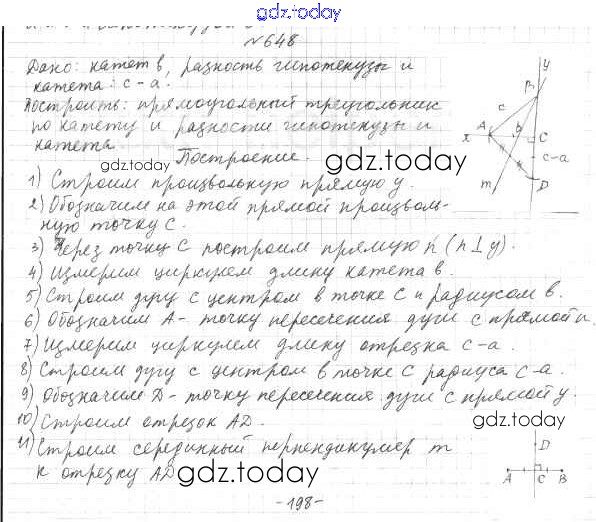 gdz.today
№648
Дано: катет в, разность гипотенузы и
катета: с-а.
Построить: прямоугольный треугольник
по катету и разности гипотенузы и
катета.
Построение.
gdz.today
gdz.today
1) Строим произвольную прямую y.
2) Обозначим на этой прямой произволь-
ную точку С.
3) Через точку С построим прямую n (n⊥y).
4) Измерим циркулем длину катета в.
5) Строим дугу с центром в точке С и радиусом в.
6) Обозначим А- точку пересечения дуги с прямой n.
7) Измерим циркулем длину отрезка с-а.
8) Строим дугу с центром в точке С радиуса с-а.
9) Обозначим D- точку пересечения дуги с прямой y.
10) Строим отрезок AD.
gdz.today
11) Строим серединный перпендикуляр m
к отрезку AD
gdz.today
-198-
y
B
c
A
b
C
x
c-a
m
D
D
A C B